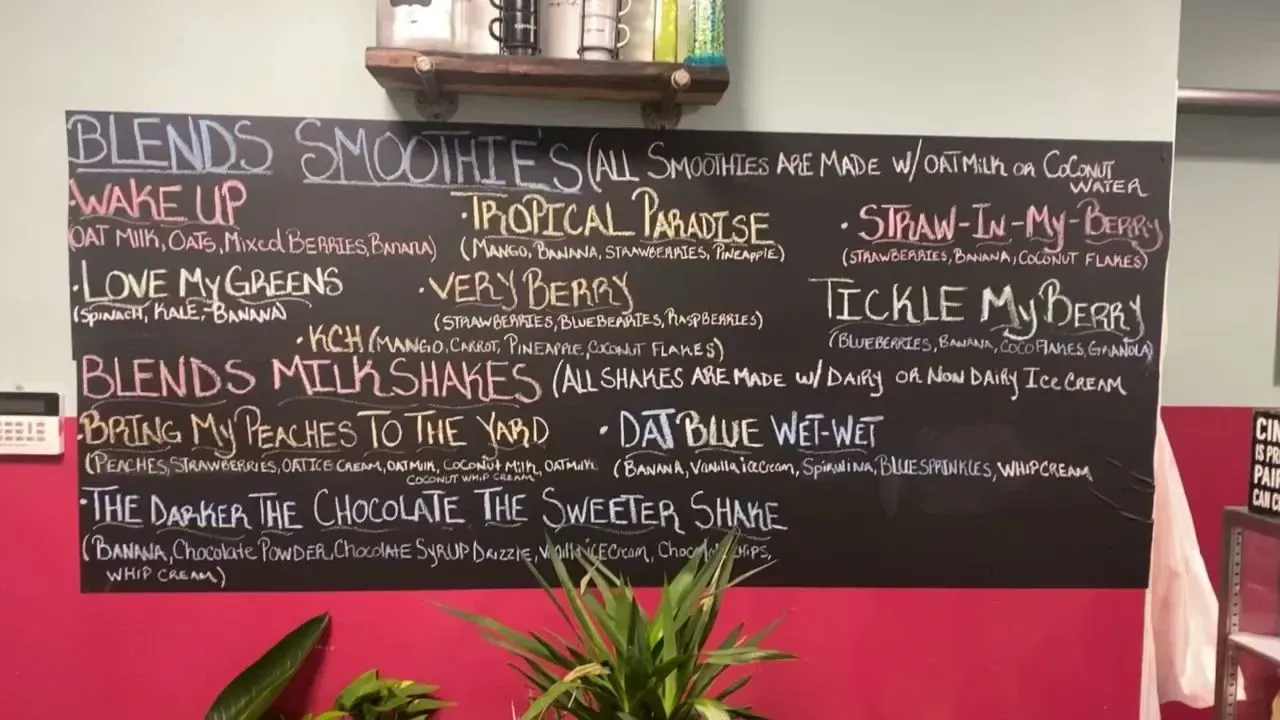 BLENDS SMOOTHIE'S (ALL SMOOTHIES ARE MADE W/ OATMILK OR COCONUT WATER
·WAKE UP
OAT MILK, OATS, MIXED BERRIES, BANANA)
·TROPICAL PARADISE
(MANGO, BANANA, STRAWBERRIES, PINEAPPLE)
·STRAW-IN-MY-BERRY
(STRAWBERRIES, BANANA, COCONUT FLAKES)
·LOVE MY GREENS
(SPINACH, KALE, BANANA)
·VERY BERRY
(STRAWBERRIES, BLUEBERRIES, RASPBERRIES)
TICKLE MY BERRY
(BLUEBERRIES, BANANA, COCO FLAKES, GRANOLA)
·KCH (MANGO, CARROT, PINEAPPLE, COCONUT FLAKES)
BLENDS MILKSHAKES (ALL SHAKES ARE MADE W/ DAIRY OR NON DAIRY ICE CREAM
·BRING MY PEACHES TO THE YARD
(PEACHES, STRAWBERRIES, OAT ICE CREAM, OATMILK, COCONUT MILK, OATMILK
COCONUT WHIP CREAM
·DAT BLUE WET-WET
(BANANA, Vanilla ice cream, Spirulina, BLUE SPRINKLES, WHIP CREAM
·THE DARKER THE CHOCOLATE THE SWEETER SHAKE
(BANANA, Chocolate POWDER, CHOCOLATE SYRUP DRIZZLE, Vanilla ICE Cream, Chocolate chips,
WHIP CREAM)
CIN
IS PR
PAIR
CAN C